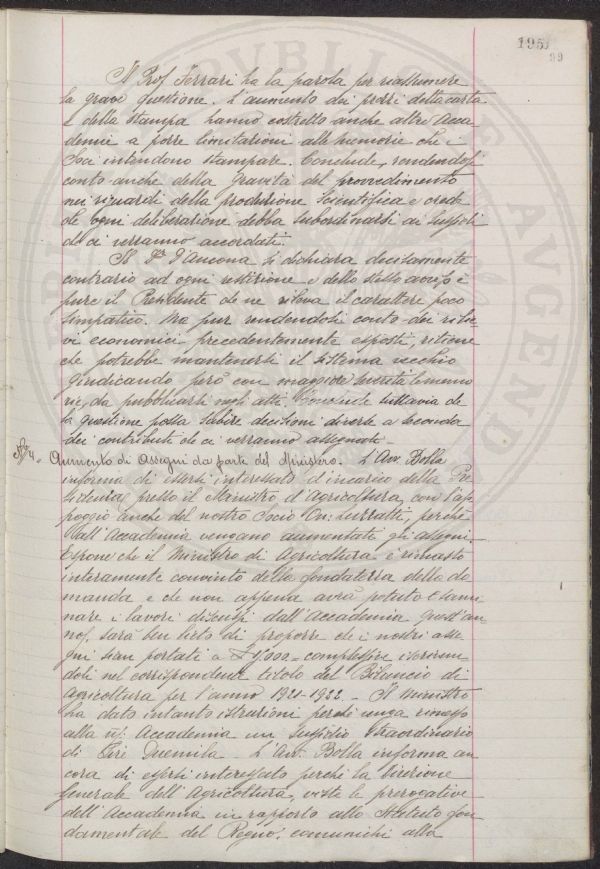 195
99
Il Prof. Ferrari ha la parola per riassumere
la grave questione. L'aumento dei prezzi della carta
e della stampa hanno costretto anche altre Acca-
demie a porre limitazioni alle memorie che i
Soci intendono stampare. Conclude, rendendosi
conto anche della gravità del provvedimento
nei riguardi della produzione scientifica e crede
che ogni deliberazione debba subordinarsi ai sussidi
che ci verranno accordati.
Il Dr. D'Ancona si dichiara decisamente
contrario ad ogni restrizione e dello stesso avviso è
pure il Presidente che ne rileva il carattere poco
simpatico. Ma pur rendendosi conto dei rilie-
vi economici precedentemente esposti, ritiene
che potrebbe mantenersi il sistema vecchio
giudicando però con maggiore severità le memo-
rie da pubblicarsi negli atti. Conviene tuttavia che
la questione possa subire decisioni diverse a seconda
dei contributi che ci verranno assegnati.
Aumento di Assegni da parte del Ministero. L'Avv. Bolla
informa di essersi interessato d'incarico della Pre-
sidenza presso il Ministro d'Agricoltura, con l'ap-
poggio anche del nostro Socio On: Luzzatti, perchè
all'Accademia vengano aumentati gli assegni.
Espone che il Ministro di Agricoltura è rimasto
interamente convinto della fondatezza della do
manda e che non appena avrà potuto esami
nare i lavori discussi dall'Accademia quest'an
no, sarà ben lieto di proporre che i nostri asse
gni sian portati a complessive iscriven-
doli nel corrispondente titolo del Bilancio di
Agricoltura per l'anno 1921-1922. Il Ministro
ha dato intanto istruzioni perchè venga rimesso
alla ns/ Accademia un sussidio straordinario
di Lire Duemila. L'Avv. Bolla informa an
cora di essersi interessato perchè la Direzione
Generale dell'Agricoltura, viste le prerogative
dell'Accademia in rapporto allo Statuto fon
damentale del Regno, comunichi alla
PVBLICAE
AVGENDAE